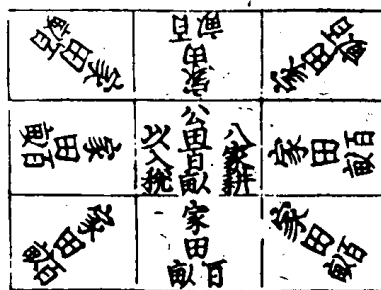 家田百畝
家田百畝
家田百畝
家田百畝
八家耕
公田百畝
以入税
家田百畝
家田百畝
家田百畝
家田百畝